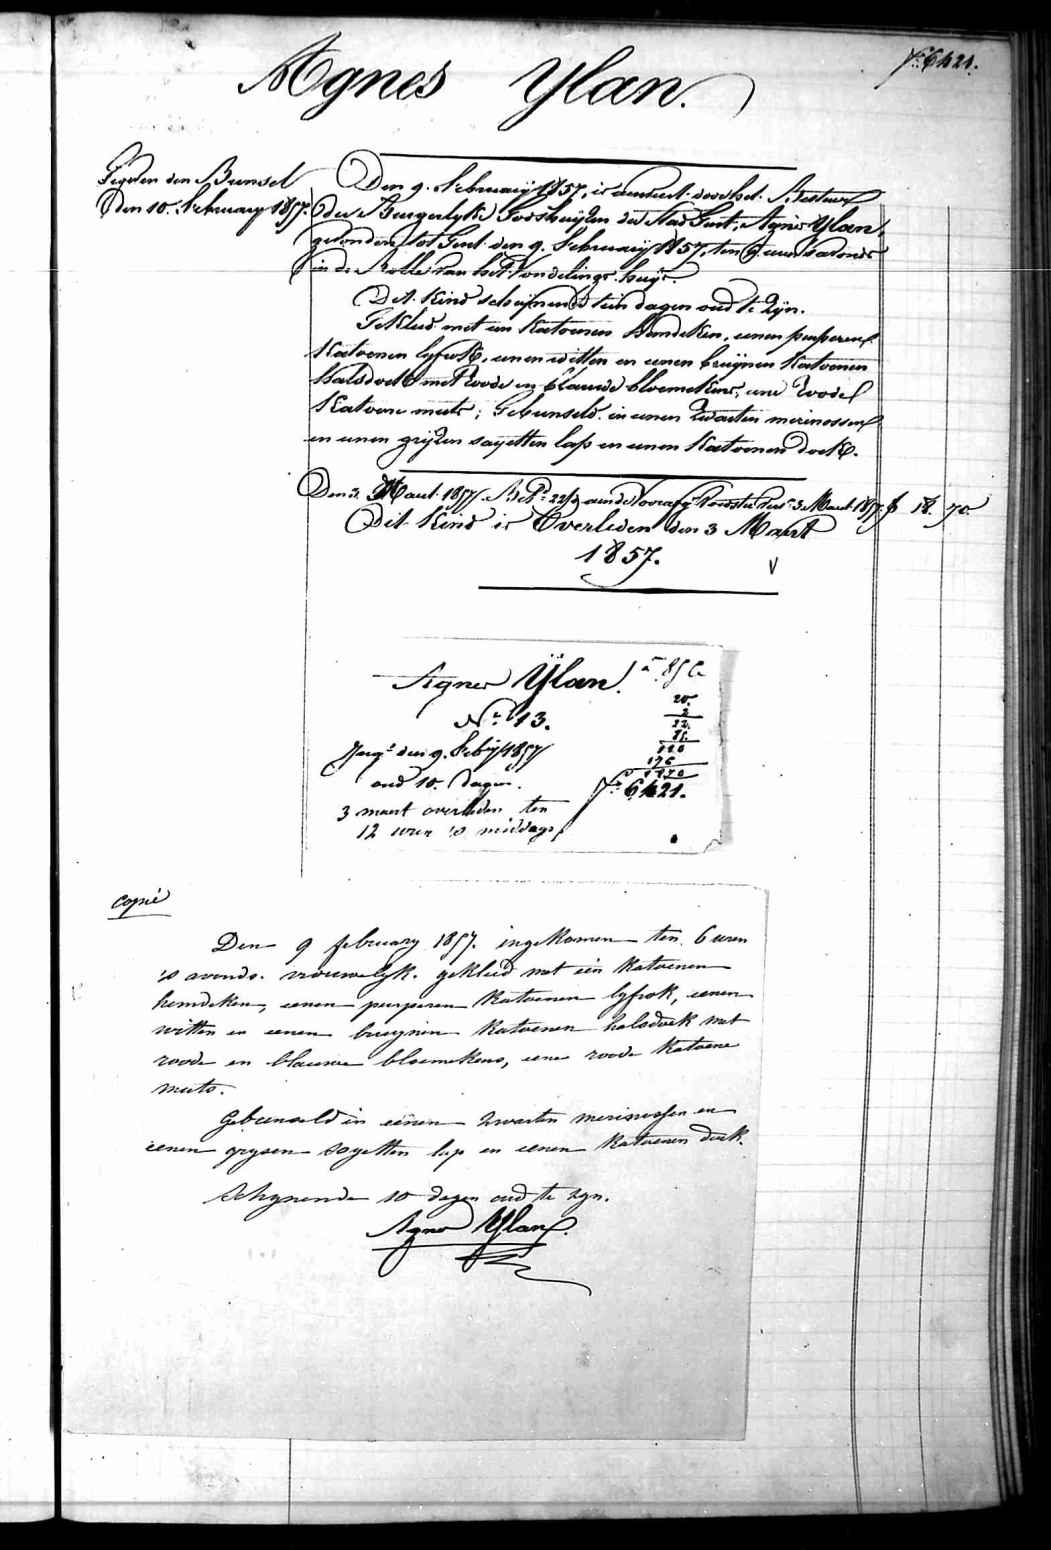 Agnes Ylan.
Fo. 6421.
Gegeven den Bunsel
Den 10. February 1857.
Den 9. February 1857, is aenveert door het Bestuer
der Burgerlyke Godshuyzen der Stad Gent, Agnes Ylan,
gevonden tot Gent den 9. February 1857, ten 6 uren 's avonds
in de Rolle van het Vondelings-huys.
Dit Kind schijnende tien dagen oud te zyn.
Gekleed met een Katoenen hemdeken, eenen purperen
Katoenen lyfrok, eenen witten en eenen bruynen Katoenen
halsdoek met roode en blauwe bloemekens, eene roode
Katoene muts; Gebunseld in eenen zwarten merinossen
en eenen gryzen sayetten lap en eenen Katoenen doek.
Den 3. Maert 1857 3 Maert 1857 f 18 70
Dit Kind is Overleden den 3 Maert
1857.
Agnes Ylan.
No. 13.
Ing. den 9. Feby 1857
oud 10. dagen.
3 maert overleden ten
12 uren 's middags
20.
2
22.
Fo. 6421.
copie
Den 9 february 1857. ingekomen ten 6 uren
's avonds. vrouwelyk. gekleed met een katoenen
hemdeken, eenen purperen katoenen lyfrok, eenen
witten en eenen bruynen katoenen halsdoek met
roode en blauwe bloemekens, eene roode katoene
muts.
Gebunseld in eenen zwarten merinossen en
eenen grysen sayetten lap en eenen katoenen doek.
Schynende 10 dagen oud te zyn.
Agnes Ylan.